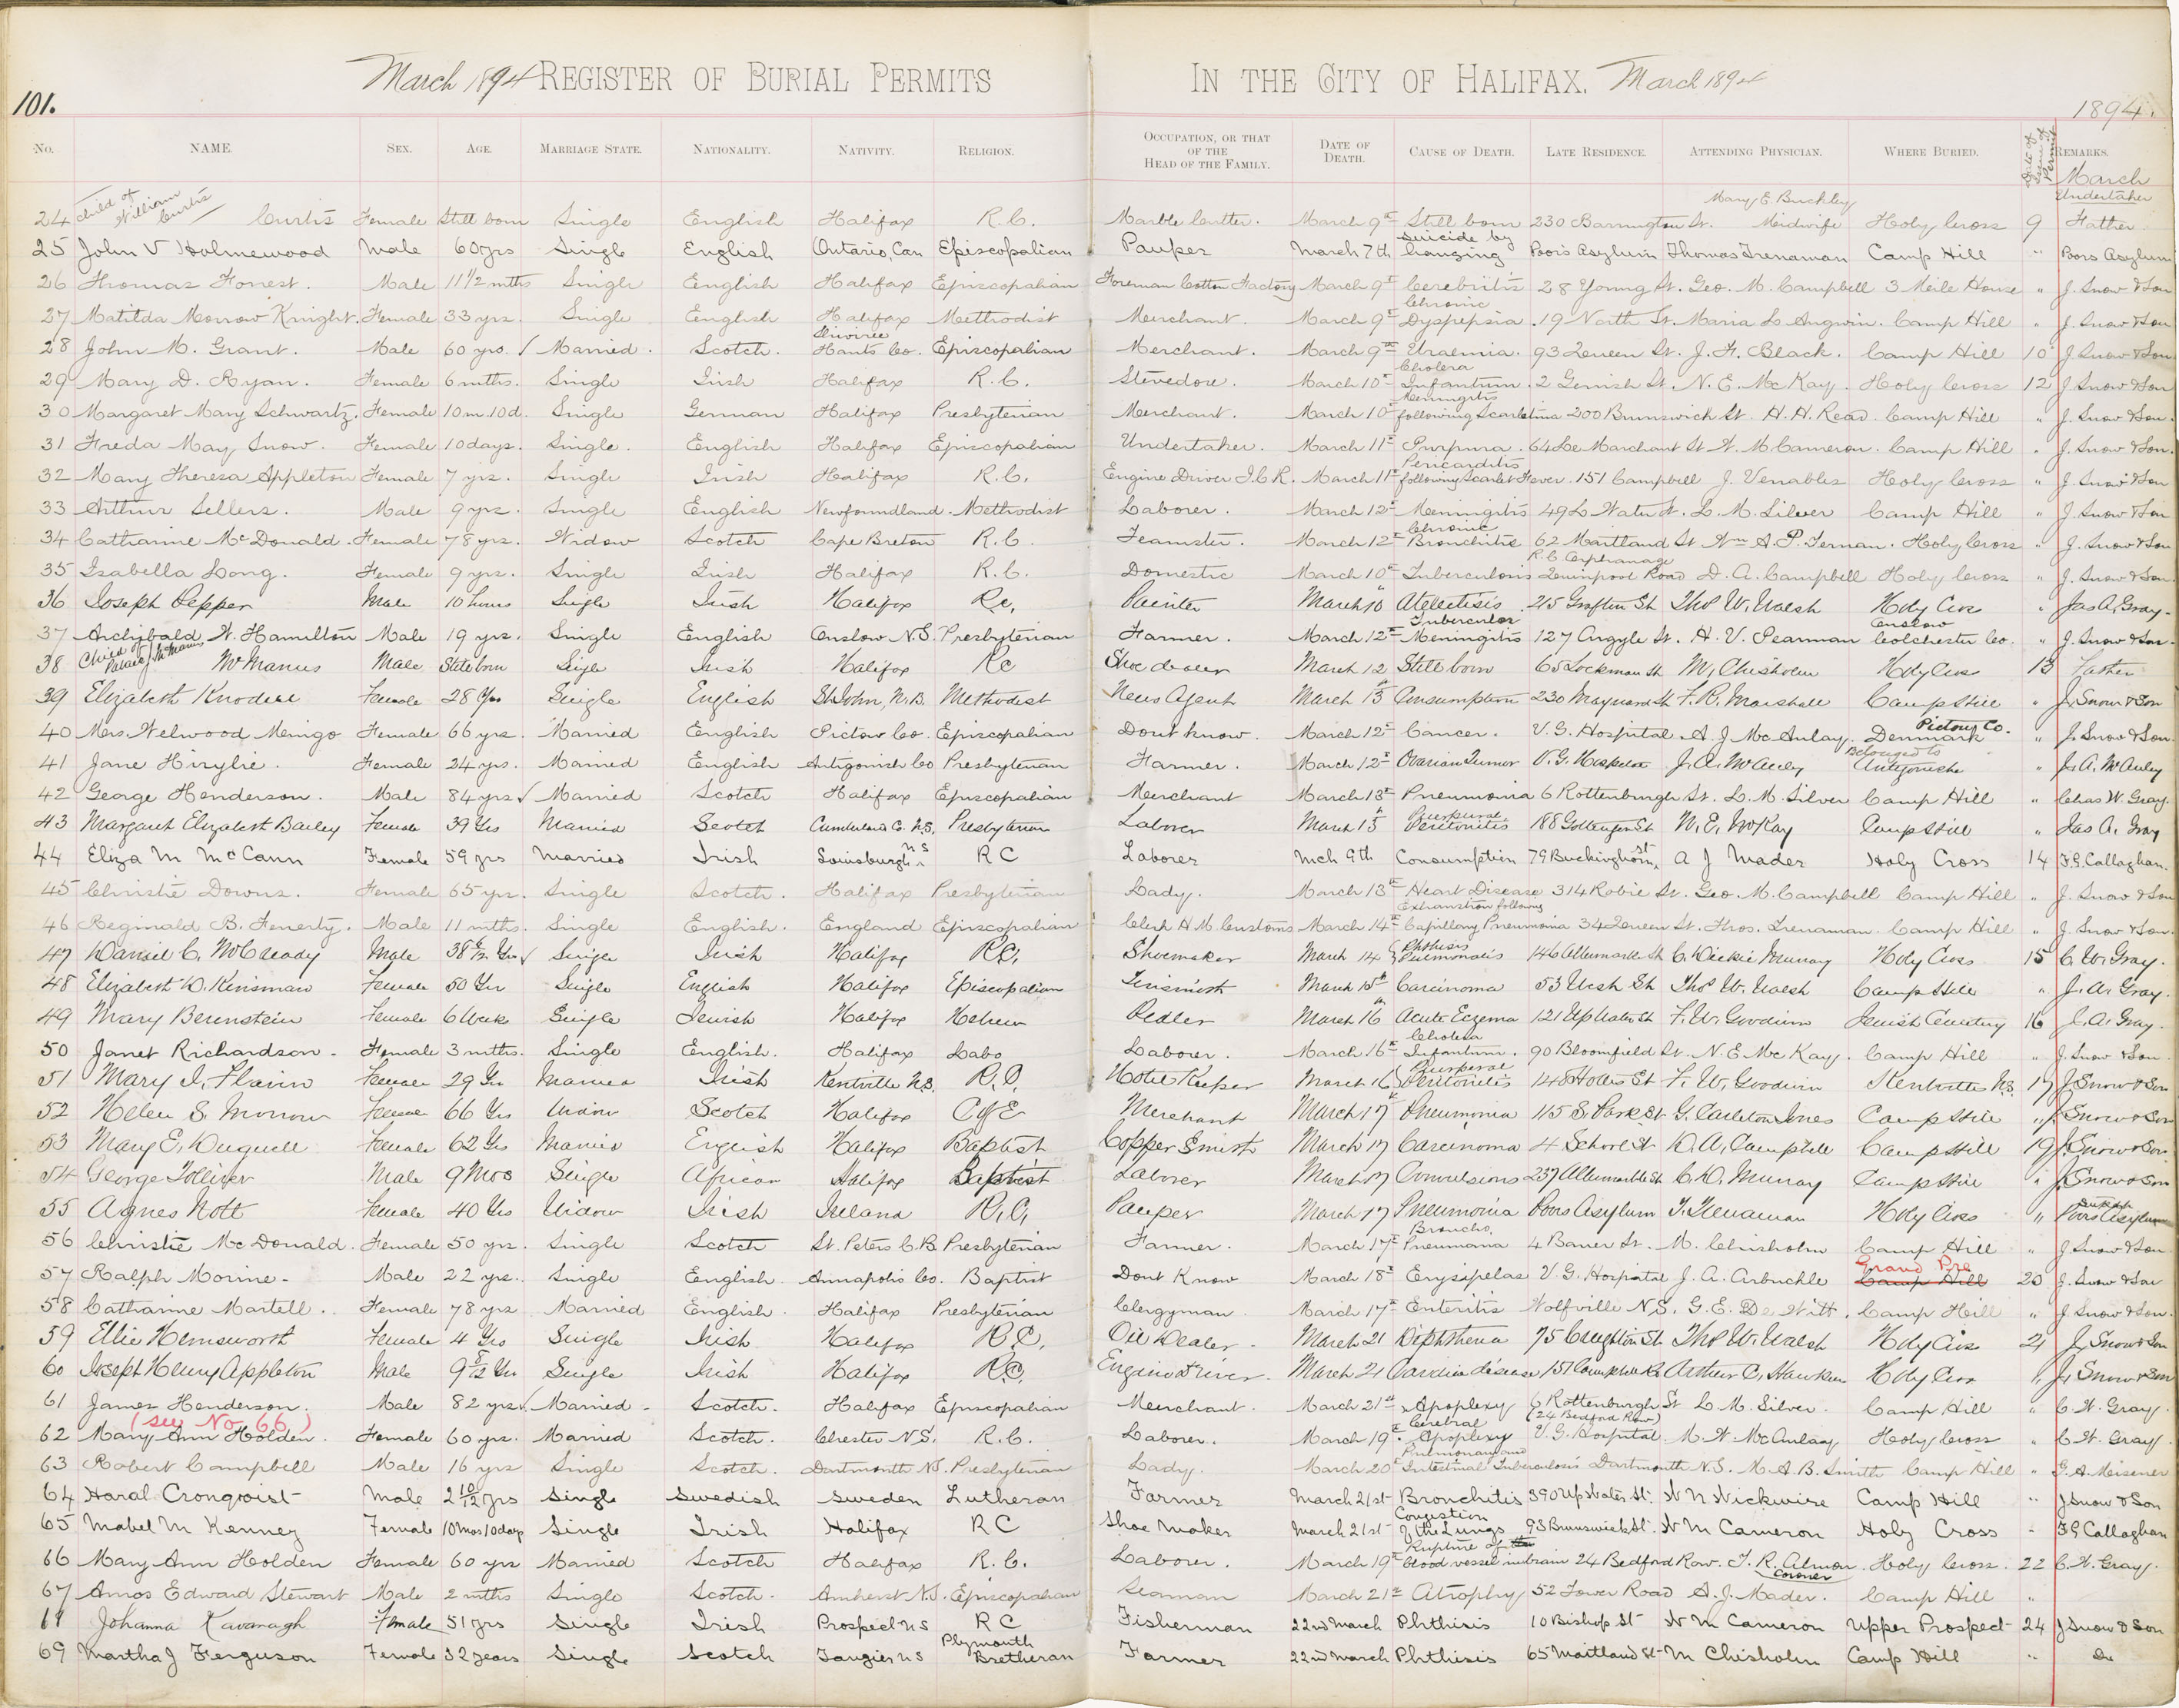 March 1894 REGISTER OF BURIAL PERMITS IN THE CITY OF HALIFAX. March 1894
101. 1894.
No. NAME. SEX. AGE. MARRIAGE STATE. NATIONALITY. NATIVITY. RELIGION. OCCUPATION, OR THAT OF THE HEAD OF THE FAMILY. DATE OF DEATH. CAUSE OF DEATH. LATE RESIDENCE. ATTENDING PHYSICIAN. WHERE BURIED. Date of Permit REMARKS.
March Undertaker
24 Child of William Curtis Curtis Female Still born Single English Halifax R.C. Marble Cutter. March 9th Still born 230 Barrington St. Mary E Buckley Midwife Holy Cross 9 Father
25 John V Holmewood Male 60 yrs Single English Ontario, Can Episcopalian Pauper March 7th Suicide by hanging Poors Asylum Thomas Trenaman Camp Hill " Poors Asylum
26 Thomas Forrest. Male 11 1/2 mths Single English Halifax Episcopalian Foreman Cotton Factory March 9th Cerebritis 28 Young St. Geo. M. Campbell 3 Meile House " J. Snow & Son
27 Matilda Morrow Knight. Female 33 yrs. Single English Halifax Methodist Merchant. March 9th Chronic Dyspepsia. 19 North St. Maria L. Angwin. Camp Hill " J. Snow & Son
28 John M. Grant. Male 60 yrs. √ Married. Scotch. Hants Co. Episcopalian Merchant. March 9th Uraemia. 93 Queen St. J. F. Black. Camp Hill 10 J. Snow & Son
29 Mary D. Ryan. Female 6 mths. Single Irish Halifax R.C. Stevedore. March 10th Cholera Infantum. 2 Gerrish St. N. E. McKay. Holy Cross 12 J. Snow & Son
30 Margaret Mary Schwartz. Female 10 m. 10 d. Single German Halifax Presbyterian Merchant. March 10 Meningitis following Scarletina 200 Brunswick St. H. H. Read. Camp Hill " J. Snow & Son.
31 Freda May Snow. Female 10 days. Single. English Halifax Episcopalian Undertaker. March 11th Purpura. 64 Le Marchant St W. M. Cameron. Camp Hill " J. Snow & Son.
32 Mary Theresa Appleton Female 7 yrs. Single Irish Halifax R.C. Engine Driver I.C.R. March 11th Pericarditis following Scarlet Fever. 151 Campbell J. Venables Holy Cross " J. Snow & Son
33 Arthur Sellers. Male 9 yrs. Single English Newfoundland. Methodist Laborer. March 12th Meningitis 49 L Water St. L. M. Silver Camp Hill " J. Snow & Son
34 Catharine McDonald. Female 78 yrs. Widow Scotch Cape Breton R.C. Teamster. March 12th Chronic Bronchitis 62 Maitland St Wm A. P. Ternan. Holy Cross " J. Snow & Son
35 Isabella Long. Female 9 yrs. Single Irish Halifax R.C. Domestic March 10th Tuberculosis R.C. Orphanage Quinpool Road D. A. Campbell Holy Cross " J. Snow & Son.
36 Joseph Pepper Male 10 hours Single Irish Halifax Rc. Painter March 10 Atelectisis 215 Grafton St Thos W. Walsh Holy Cross " Jas A, Gray.
37 Archibald W. Hamilton Male 19 yrs. Single English Onslow N.S. Presbyterian Farmer. March 12th Tubercular Meningitis 127 Argyle St. H. V. Pearman Onslow Colchester Co. " J. Snow & Son.
38 Child of McManus McManus Male Still born Single Irish Halifax Rc Shoe dealer March 12 Still born 65 Lockman St M, Chisholm Holy Cross 13 Father
39 Elizabeth Knodell Female 28 Yrs Single English St John, N.B. Methodist News Agent March 13 Consumption 230 Maynard St F. R. Marshall Camp Hill " J. Snow & Son
40 Mrs. Welwood Menigo Female 66 yrs. Married English Pictou Co. Episcopalian Dont know. March 12th Cancer. V. G. Hospital A. J. McAulay. Denmark Pictou Co. " J. Snow & Son.
41 Jane Hirylie. Female 24 yrs. Married English Antigonish Co Presbyterian Farmer. March 12th Ovarian Tumor V. G. Hospital J. A. McAuley Belonged to Antigonishe " J. A. McAuley
42 George Henderson. Male 84 yrs √ Married Scotch Halifax Episcopalian Merchant March 13th Pneumonia 6 Rottenburgh St. L. M. Silver Camp Hill " Chas W. Gray.
43 Margaret Elizabeth Bailey Female 39 Yrs Married Scotch Cumberland C. N.S. Presbyterian Laborer March 13 Puerperal Peritonitis 188 Gottengen St N. E. McKay Camp Hill " Jas A. Gray
44 Eliza M McCann Female 59 yrs Married Irish Louisburgh N S RC Laborer Mch 9th Consumption 79 Buckingham St A J Mader Holy Cross 14 F.G. Callaghan.
45 Christie Downs. Female 65 yrs. Single Scotch. Halifax Presbyterian Lady. March 13th Heart Disease 314 Robie St. Geo. M. Campbell Camp Hill " J. Snow & Son
46 Reginald B. Fenerty. Male 11 mths. Single English. England Episcopalian Clerk H. M. Customs March 14th Exhaustion following Capillary Pneumonia 34 Queen St. Thos. Trenaman. Camp Hill " J. Snow & Son.
47 Daniel C. McCready Male 38 Yrs √ Single Irish Halifax R.C. Shoemaker March 14 Phthisis Pulmonalis 146 Albemarle St C. Dickie Murray Holy Cross 15 C. W. Gray.
48 Elizabeth D. Kinsman Female 50 Yrs Single English Halifax Episcopalian Tinsmith March 15th Carcinoma 53 West St Thos W. Walsh Camp Hill " J. A. Gray.
49 Mary Bernstein Female 6 Weeks Single Jewish Halifax Hebrew Pedler March 16 Acute Eczema 121 Up Water St F. W. Goodwin Jewish Cemetery 16 J. A. Gray.
50 Janet Richardson. Female 3 mths. Single English. Halifax Labo Laborer. March 16th Cholera Infantum. 90 Bloomfield St. N. E. McKay. Camp Hill " J. Snow & Son.
51 Mary I. Flavin Female 29 Yrs Married Irish Kentville N.S. R.C. Hotel Keeper March 16 Puerperal Peritonitis 148 Hollis St F. W. Goodwin Kentville N.S. 17 J. Snow & Son
52 Helen S. Morrow Female 66 Yrs Widow Scotch Halifax C of E Merchant March 17 Pneumonia 115 S. Park St G. Carleton Jones Camp Hill " J. Snow & Son
53 Mary E. Duguell Female 62 Yrs Married English Halifax Baptist Copper Smith March 17 Carcinoma 4 School St D. A. Campbell Camp Hill 19 J. Snow & Son
54 George Tolliver Male 9 Mos Single African Halifax Baptist Laborer March 17 Convulsions 237 Albemarle St C. D. Murray Camp Hill " J. Snow & Son
55 Agnes Nott Female 40 Yrs Widow Irish Ireland R.C. Pauper March 17 Pneumonia Poors Asylum T. Trenaman Holy Cross " Poors Asylum
56 Christie McDonald. Female 50 yrs. Single Scotch St. Peters C.B. Presbyterian Farmer. March 17th Broncho. Pneumonia 4 Bauer St. M. Chisholm Camp Hill " J. Snow & Son
57 Ralph Morine. Male 22 yrs. Single English. Annapolis Co. Baptist Dont Know March 18th Erysipelas V. G. Hospital J. A. Arbuckle Camp Hill Grand Pre 20 J. Snow & Son
58 Catharine Martell. Female 78 yrs Married English. Halifax Presbyterian Clergyman. March 17th Enteritis Wolfville N.S. G. E. De Witt. Camp Hill " J. Snow & Son.
59 Ellie Hemsworth Female 4 Yrs Single Irish Halifax R.C. Oil Dealer March 21 Diphtheria 75 Creighton St Thos W. Walsh Holy Cross 21 J. Snow & Son
60 Joseph Henry Appleton Male 9 5/12 Yrs Single Irish Halifax R.C. Engine Driver. March 21 Cardiac disease 151 Campbell Rd Arthur C, Hawkins Holy Cross " J, Snow & Son
61 James Henderson. Male 82 yrs √. Married. Scotch. Halifax Episcopalian Merchant. March 21st Apoplexy 6 Rottenburgh St L. M. Silver. Camp Hill " C. W. Gray.
(see No. 66)
62 Mary Ann Holden. Female 60 yrs. Married Scotch. Chester N.S. R.C. Laborer. March 19th Cerebral Apoplexy (24 Bedford Row) V. G. Hospital. M. W. McAulay Holy Cross " C. W. Gray.
63 Robert Campbell Male 16 yrs Single Scotch. Dartmouth N.S. Presbyterian Lady. March 20th Pulmonary and Intestinal Tuberculosis Dartmouth N.S. M. A. B. Smith Camp Hill " G. A. Meisener
64 Haral Cronqvist Male 2 10/12 yrs Single Swedish Sweden Lutheran Farmer March 21st Bronchitis 390 Up Water St. W N Wickwire Camp Hill " J Snow & Son
65 Mabel M Kenney Female 10 Mos 10 days Single Irish Halifax RC Shoe Maker March 21st Congestion of the Lungs 93 Brunswick St. W M Cameron Holy Cross " F G Callaghan
66 Mary Ann Holden Female 60 yrs Married Scotch Halifax R.C. Laborer. March 19th Rupture of blood vessel in brain 24 Bedford Row. T. R. Almon Coroner Holy Cross. 22 C. W. Gray.
67 Amos Edward Stewart Male 2 mths Single Scotch. Amherst N.S. Episcopalian Seaman March 21st Atrophy 52 Tower Road A. J. Mader. Camp Hill "
68 Johanna Kavanagh Female 51 yrs Single Irish Prospect N S RC Fisherman 22nd March Phthisis 10 Bishop St W M Cameron Upper Prospect 24 J Snow & Son
69 Martha J Ferguson Female 32 years Single Scotch Tangier N S Plymouth Bretheran Farmer 22nd March Phthisis 65 Maitland St M Chisholm Camp Hill " Do